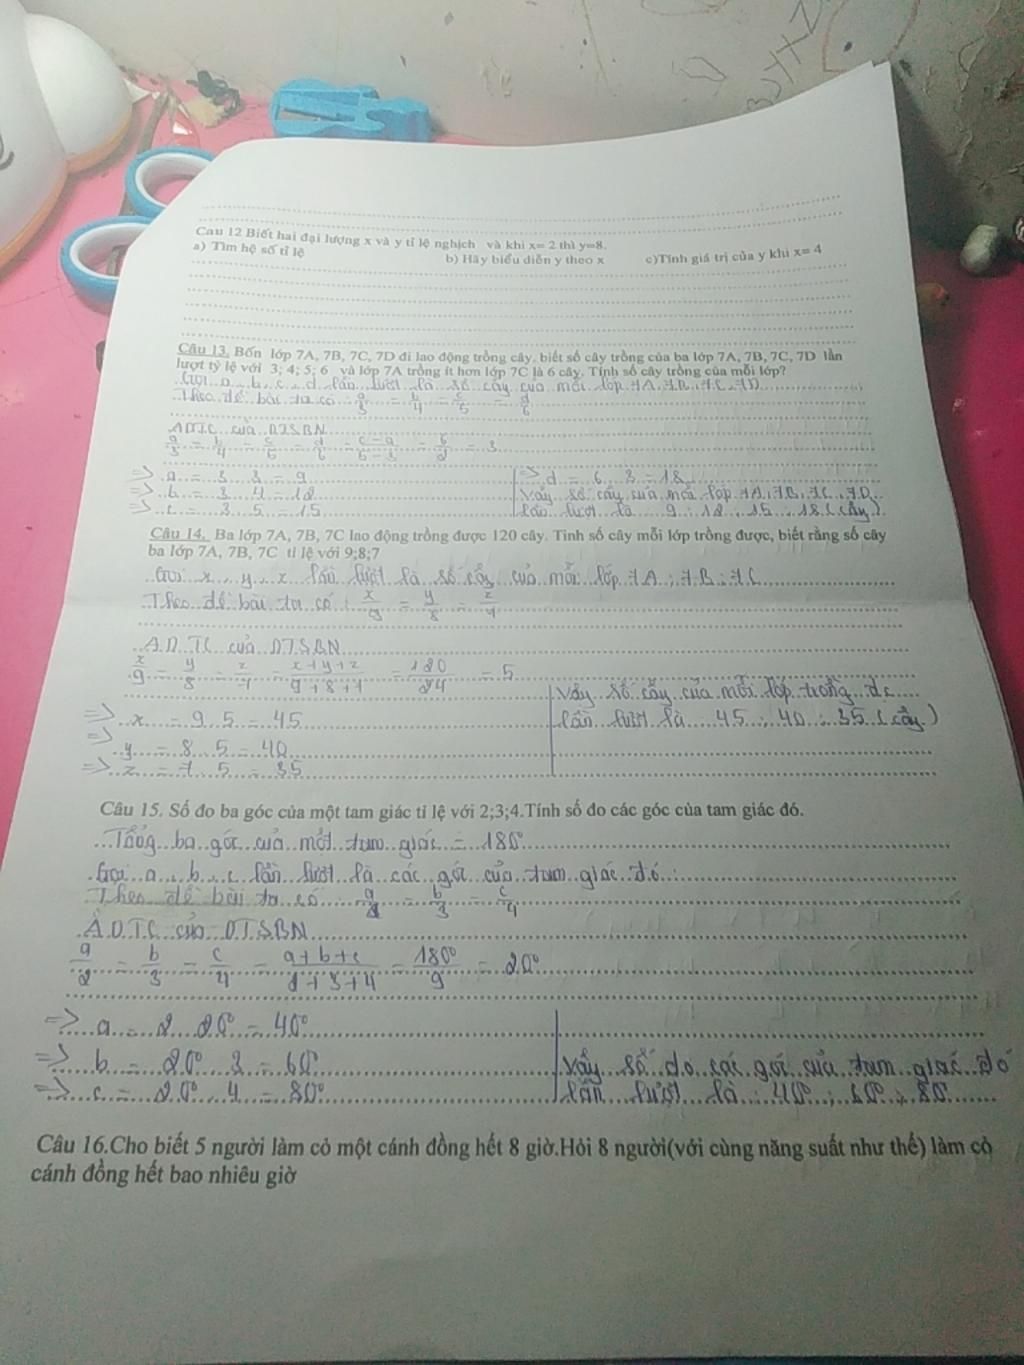 Câu 12 Biết hai đại lượng x và y tỉ lệ nghịch và khi x= 2 thì y=8.
a) Tìm hệ số tỉ lệ b) Hãy biểu diễn y theo x c)Tính giá trị của y khi x= 4
Câu 13. Bốn lớp 7A, 7B, 7C, 7D đi lao động trồng cây. biết số cây trồng của ba lớp 7A, 7B, 7C, 7D lần
lượt tỷ lệ với 3; 4; 5; 6 và lớp 7A trồng ít hơn lớp 7C là 6 cây. Tính số cây trồng của mỗi lớp?
Gọi a, b, c, d lần lượt là số cây của mỗi lớp 7A, 7B, 7C, 7D
Theo đề bài ta có: a/3 = b/4 = c/5 = d/6
ADTC của DTSBN
a/3 = b/4 = c/5 = d/6 = c-a/5-3 = 6/2 = 3
=> a = 3 . 3 = 9
=> b = 3 . 4 = 12
=> c = 3 . 5 = 15
=> d = 6 . 3 = 18
Vậy số cây của mỗi lớp 7A, 7B, 7C, 7D
lần lượt là 9; 12; 15; 18 (cây)
Câu 14. Ba lớp 7A, 7B, 7C lao động trồng được 120 cây. Tính số cây mỗi lớp trồng được, biết rằng số cây
ba lớp 7A, 7B, 7C tỉ lệ với 9;8;7
Gọi x, y, z lần lượt là số cây của mỗi lớp 7A; 7B; 7C
Theo đề bài ta có: x/9 = y/8 = z/7
ADTC của DTSBN
x/9 = y/8 = z/7 = x+y+z/9+8+7 = 120/24 = 5
=> x = 9 . 5 = 45
=>
y = 8 . 5 = 40
=> z = 7 . 5 = 35
Vậy số cây của mỗi lớp trồng đc
lần lượt là 45; 40; 35 (cây)
Câu 15. Số đo ba góc của một tam giác tỉ lệ với 2;3;4.Tính số đo các góc của tam giác đó.
Tổng ba góc của một tam giác = 180°
Gọi a, b, c lần lượt là các góc của tam giác đó:
Theo đề bài ta có a/2 = b/3 = c/4
ADTC của DTSBN
a/2 = b/3 = c/4 = a+b+c/2+3+4 = 180°/9 = 20°
=> a = 2 . 20° = 40°
=> b = 20° . 3 = 60°
=> c = 20° . 4 = 80°
Vậy số đo các góc của tam giác đó
lần lượt là: 40°; 60°; 80°
Câu 16.Cho biết 5 người làm cỏ một cánh đồng hết 8 giờ.Hỏi 8 người(với cùng năng suất như thế) làm cỏ
cánh đồng hết bao nhiêu giờ